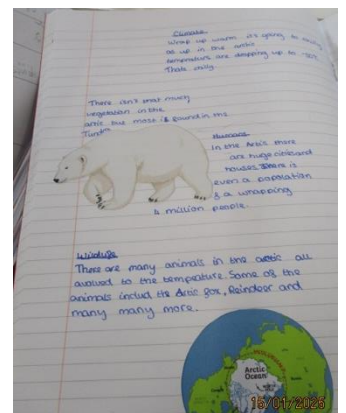 Climate
Wrap up warm its going to
up in the artic
temperature are dropping up to
Thats chilly
There isn't that much
vegetation in the
artic but most is found in the
Tundra
Humans
In the Artic there
are huge
houses There is
even a population
of a whopping
4 million people.
Wildlife
There are many animals in the arctic all
evolved to the temperature. Some of the
animals includ the Artic fox, Reindeer and
many many more.
Arctic
Ocean
16/01/2026